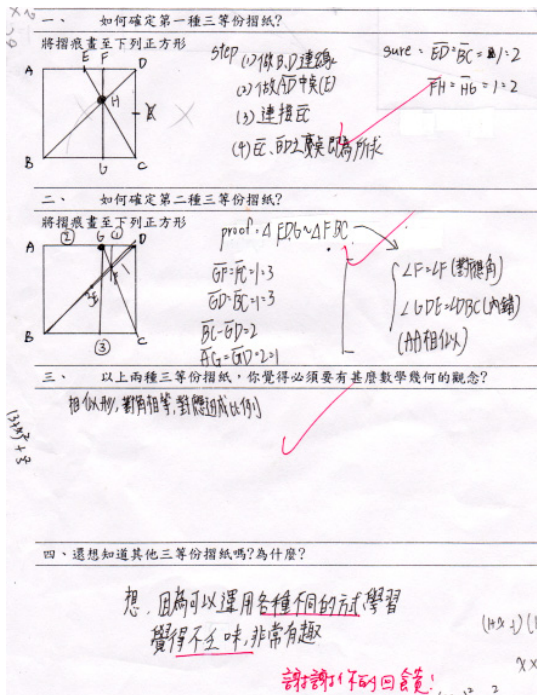 一、 如何確定第一種三等份摺紙?
將摺痕畫至下列正方形
A E F D
H
B G C
step (1) 做B.D連線
(2) 做AD中奌(E)
(3) 連接EC
(4) EC、BD之交奌即為所求
sure: ED:BC=1:2
FH:HG=1:2
二、 如何確定第二種三等份摺紙?
將摺痕畫至下列正方形
② G ① D
A
F
E
B C
③
proof: △FDG~△FBC
GF:FC=1:3
GD:BC=1:3
BC-GD=2
AG:GD=2:1
∠F=∠F(對頂角)
∠GDF=∠DBC(內錯)
(AA相似)
三、 以上兩種三等份摺紙,你覺得必須要有甚麼數學幾何的觀念?
相似形,對角相等,對應邊成比例
四、還想知道其他三等份摺紙嗎?為什麼?
想,因為可以運用各種不同的方式學習
覺得不乏味,非常有趣
謝謝你的回饋!